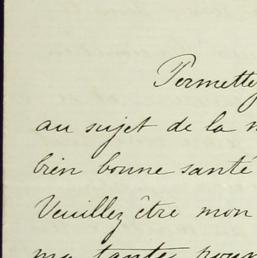 Permettez
au sujet de la
bien bonne santé
Veuillez être mon
ma tante pour